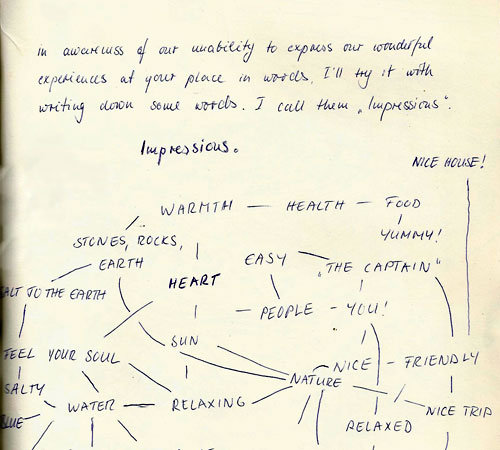 in awareness of our unability to express our wonderful
experiences at your place in words, I'll try it with
writing down some words. I call them „Impressions".
Impressions.
NICE HOUSE!
WARMTH — HEALTH — FOOD
YUMMY!
STONES, ROCKS,
EARTH
EASY
„THE CAPTAIN"
HEART
SALT TO THE EARTH
PEOPLE - YOU!
SUN
FEEL YOUR SOUL
NICE - FRIENDLY
NATURE
SALTY
WATER — RELAXING
NICE TRIP
BLUE
RELAXED